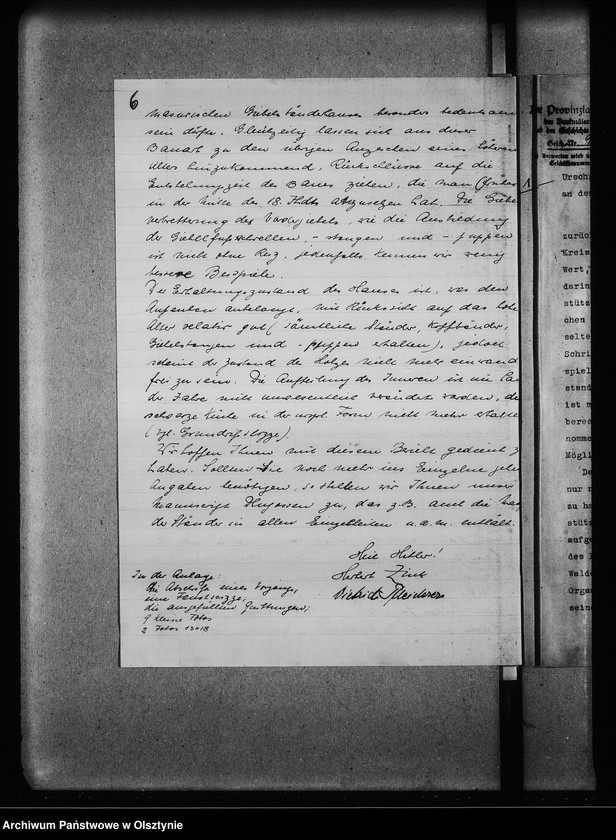 6
masurischen Giebelständerhauses besonders bedeutsam
sein dürfte. Gleichzeitig lassen sich aus dieser
Bauart zu den übrigen Anzeichen eines höheren
Alters hinzukommend, Rückschlüsse auf die
Entstehungszeit des Baues ziehen, die man
in der Mitte des 18. Jhdts anzusetzen hat. Die Giebel
verbretterung des Vordergiebels, wie die Ausbildung
der Giebelfußschwellen, - stangen und - puppen
ist nicht ohne Reiz, jedenfalls kennen wir wenig
bessere Beispiele.
Der Erhaltungszustand des Hauses ist, was den
Aufbau anbelangt, mit Rücksicht auf das hohe
Alter relativ gut (sämtliche Ständer, Kopfbänder,
Giebelstangen und - puppen erhalten), jedoch
scheint der Zustand des Holzes nicht mehr einwand
frei zu sein. Die Aufteilung des Inneren ist im Lau
der Jahre nicht unwesentlich verändert worden, die
schwarze Küche in der urspr. Form nicht mehr erhalten
(vgl. Grundrißskizze).
Wir hoffen Ihnen mit diesem Bericht gedient z
haben. Sollten Sie noch mehr ins Einzelne gehe
Angaben benötigen, so stellen wir Ihnen unser
Manuscript zu, das z.B. auch die
der Ständer in allen Einzelheiten u.a.m. enthält.
Heil Hitler!
Herbert Zink
Dietrich
In der Anlage:
Die Abschrift eines Vorgangs,
eine
die ausgefüllten Quittungen;
9 kleine Fotos
2 Fotos 13x18
Der Provinzia
der Denkmäler
und der Geschichte
Gesch.-Nr.
Urschr
an den
zurück
Kreis
Wert,
darin
stütz
chen
selte
Schri
spiel
stand
ist m
berec
nomme
Mögli
De
nur n
zu ha
stütz
aufge
des
Walde
Organ
seine
Archiwum Państwowe w Olsztynie